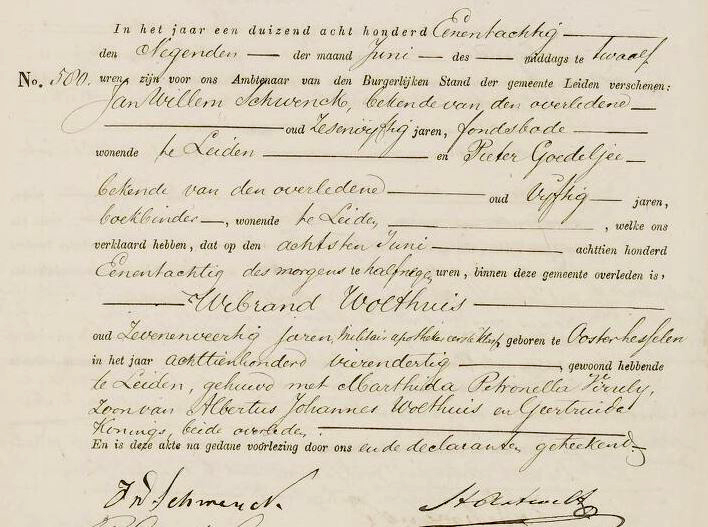 In het jaar een duizend acht honderd Eenentachtig
den Negenden der maand Juni des middags te twaalf
No. 580. uren, zijn voor ons Ambtenaar van den Burgerlijken Stand der gemeente Leiden verschenen:
Jan Willem Schwenck, bekende van den overledene
oud Zesenvyftig jaren, fondsbode
wonende te Leiden en Pieter Goedeljee
bekende van den overledene oud Vyftig jaren,
boekbinder, wonende te Leiden, welke ons
verklaard hebben, dat op den achtsten Juni achttien honderd
Eenentachtig des morgens te half negen uren, binnen deze gemeente overleden is,
Wibrand Wolthuis
oud Zevenenveertig Jaren, Militair apotheker eerste klasse, geboren te Oosterhesselen
in het jaar achttienhonderd vierendertig, gewoond hebbende
te Leiden, gehuwd met Marthida Petronella Viruly,
Zoon van Albertus Johannes Wolthuis en Geertruida
Konings, beide overleden.
En is deze akte na gedane voorlezing door ons en de declaranten geteekend.
JW Schwenck.